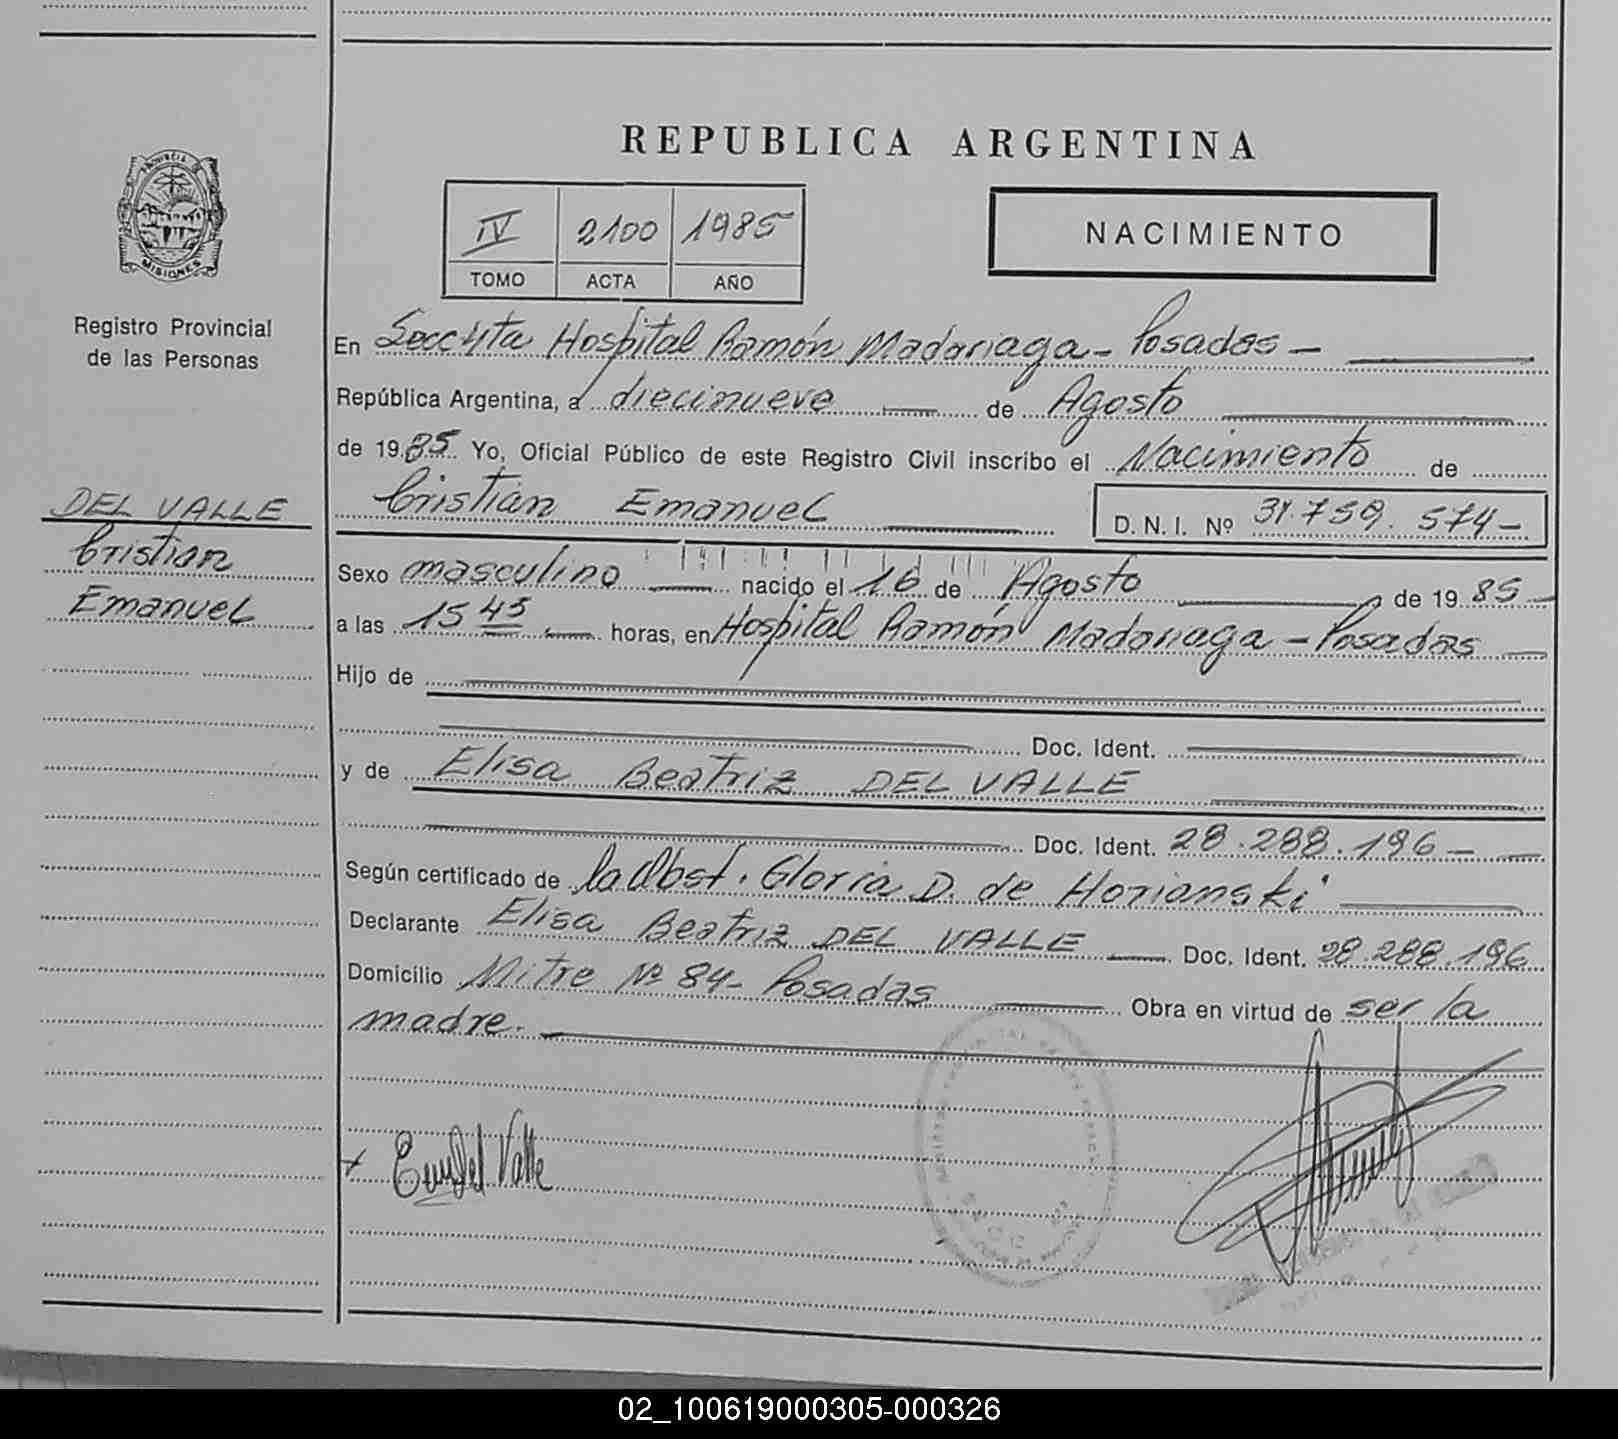 REPUBLICA ARGENTINA
PROVINCIA DE
MISIONES
Registro Provincial
de las Personas
IV 2100 1985
TOMO ACTA AÑO
NACIMIENTO
En Secc 4ta Hospital Ramón Madariaga - Posadas -
República Argentina, a diecinueve de Agosto
de 1985 Yo, Oficial Público de este Registro Civil inscribo el Nacimiento de
DEL VALLE
Cristian
Emanuel
Cristian Emanuel
D. N. I. Nº 31.759.574-
Sexo masculino nacido el 16 de Agosto de 1985
a las 15 45 horas, en Hospital Ramón Madariaga - Posadas
Hijo de
Doc. Ident.
y de Elisa Beatriz DEL VALLE
Doc. Ident. 28.288.196-
Según certificado de la Obst. Gloria D. de Horianski
Declarante Elisa Beatriz DEL VALLE Doc. Ident. 28.288.196
Domicilio Mitre Nº 84- Posadas Obra en virtud de ser la
madre.
Del Valle
02_100619000305-000326